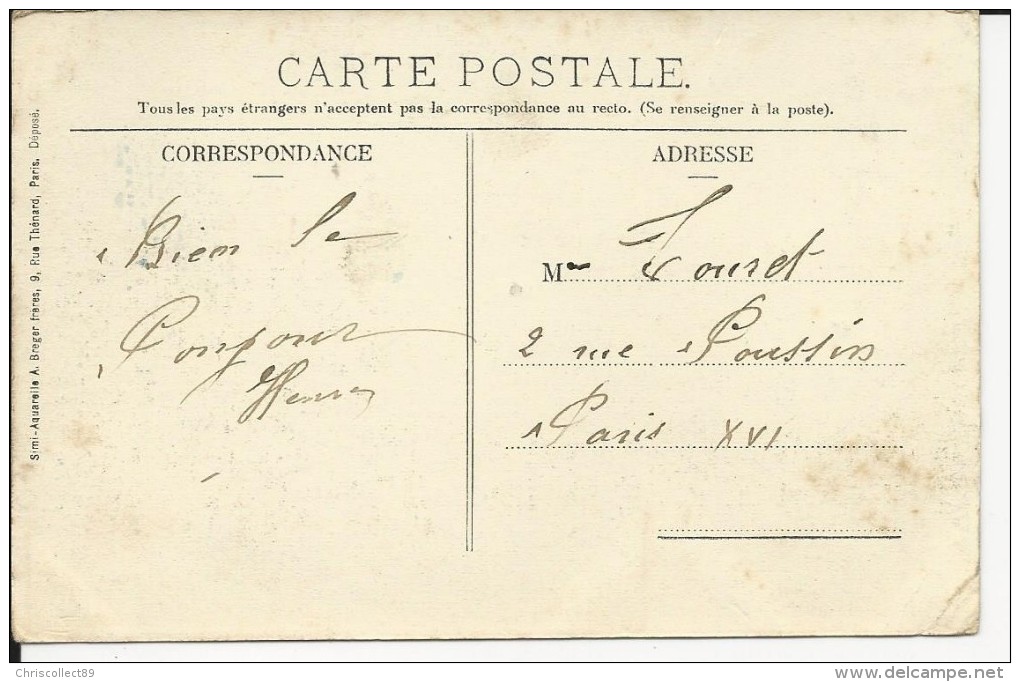 CARTE POSTALE.
Tous les pays étrangers n'acceptent pas la correspondance au recto. (Se renseigner à la poste).
Simi-Aquarelle A. Breger frères, 9, Rue Thénard, Paris. Déposé.
CORRESPONDANCE
Bien le
Henry
ADRESSE
Mme Touret
2 rue Poussin
Paris XVI
Chriscollect89
delcampe.net